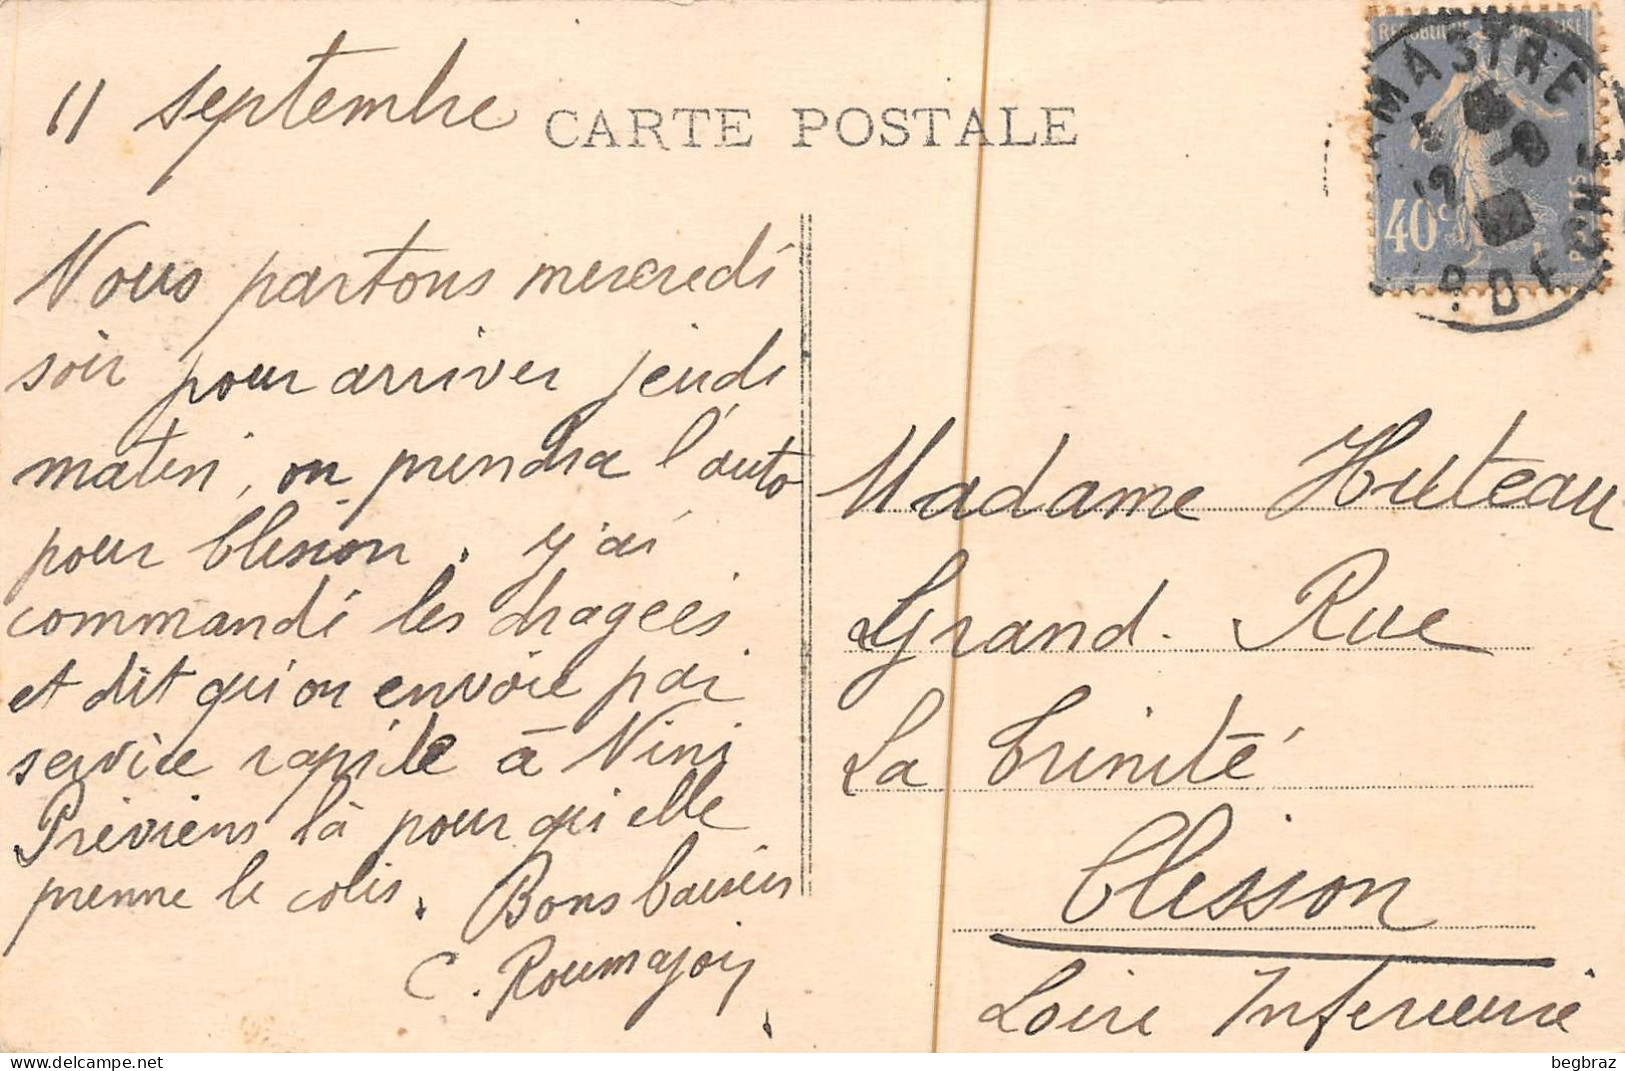 11 septembre
CARTE POSTALE
REPUBLIQUE FRANCAISE
40c
POSTES
LAMASTRE
ARDECHE
Nous partons mercredi
soir pour arriver jeudi
matin, on prendra l'auto
pour Clisson. J'ai
commandé les dragées
et dit qu'on envoie par
service rapide à Nini
Préviens là pour qu'elle
prenne le colis. Bons baisers
C. Roumajoy
Madame Huteau
Grand. Rue
La Trinité
Clisson
Loire Inferieure
begbraz